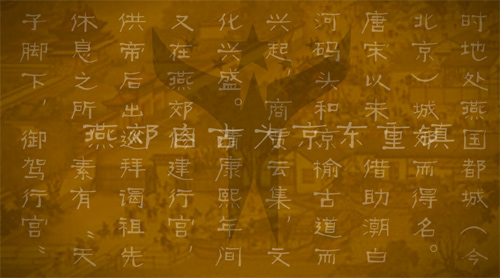 时地处燕国都城（今
北京）城郊而得名。
唐宋以来，借助潮白
河码头和京榆古道而
兴起，商贾云集，文
化兴盛。康熙年间
又在燕郊建行宫，
供帝后出巡拜谒祖先
休息之所，素有“天
子脚下，御驾行宫”
燕郊自古为京东重镇